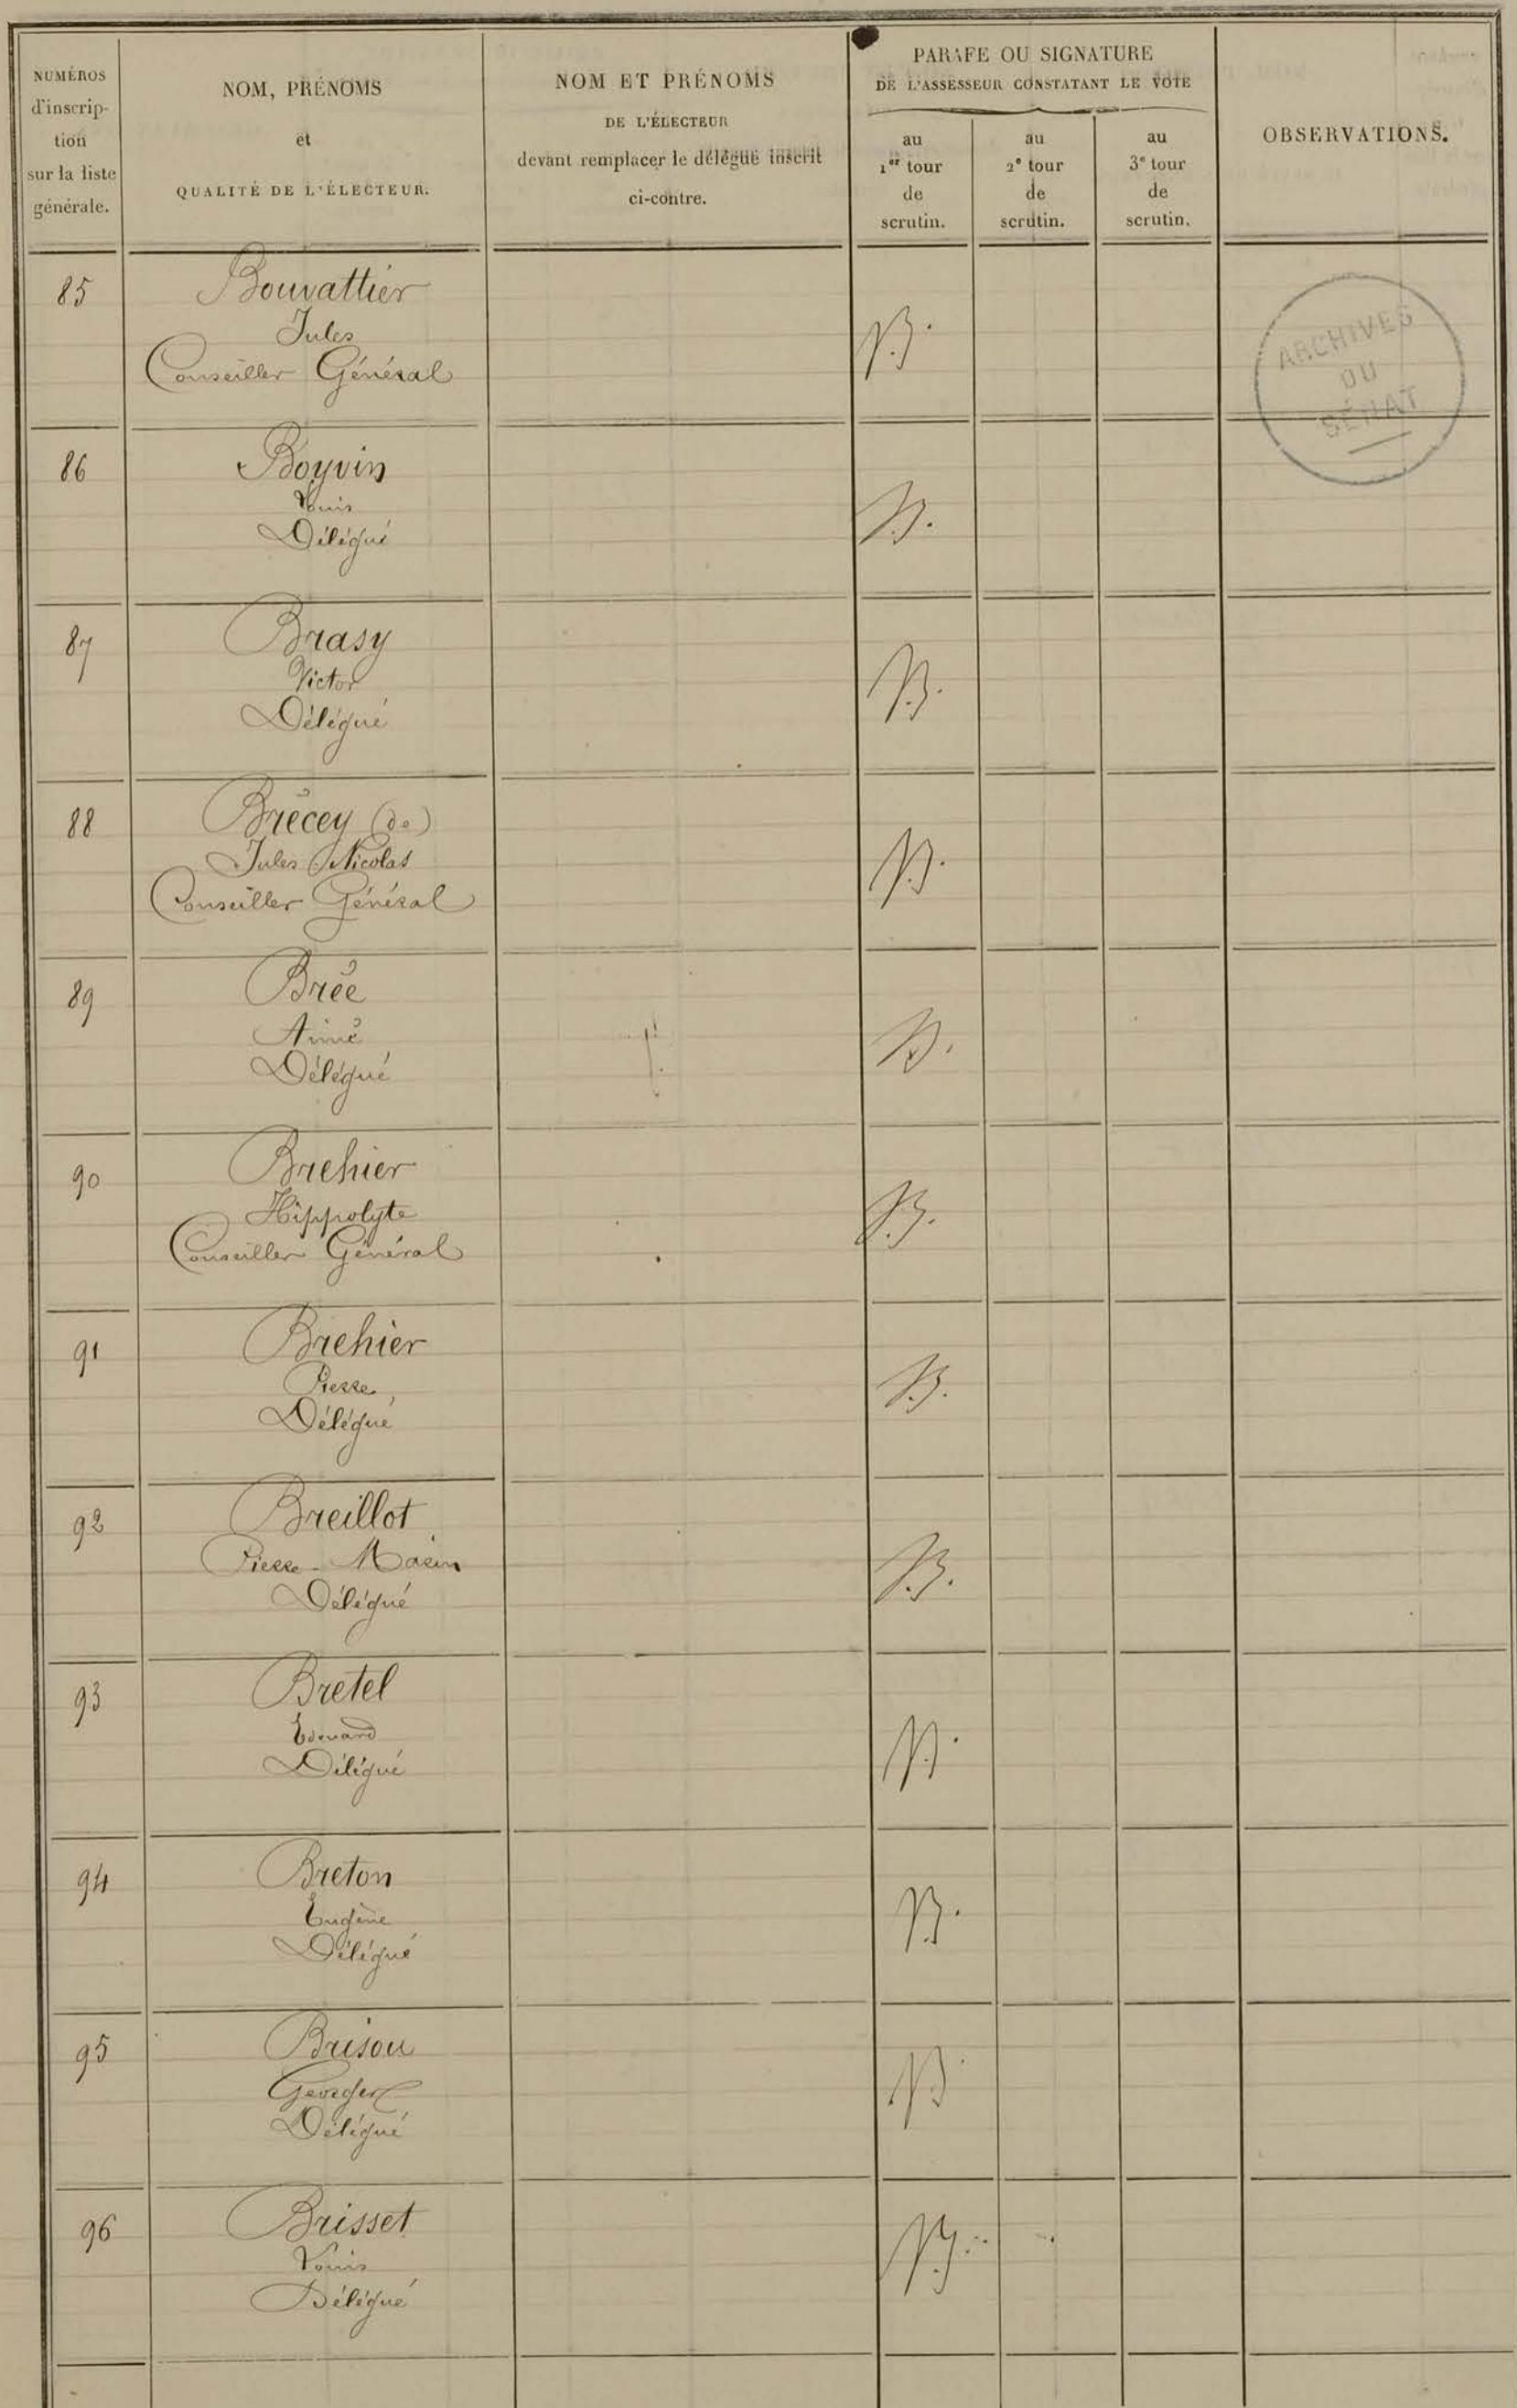 NUMÉROS
d'inscrip-
tion
sur la liste
générale.
NOM, PRÉNOMS
et
QUALITÉ DE L'ÉLECTEUR.
NOM ET PRÉNOMS
DE L'ÉLECTEUR
devant remplacer le délégué inscrit
ci-contre.
PARAFE OU SIGNATURE
DE L'ASSESSEUR CONSTATANT LE VOTE
au
1er tour
de
scrutin.
au
2e tour
de
scrutin.
au
3e tour
de
scrutin.
OBSERVATIONS.
ARCHIVES
DU
SÉNAT
85
Bouvattier
Jules
Conseiller Général
B.
86
Boyvin
Louis
Délégué
B.
87
Brasy
Victor
Délégué
B.
88
Brécey (de)
Jules Nicolas
Conseiller Général
B.
89
Brée
Aimé
Délégué
B.
90
Brehier
Hippolyte
Conseiller Général
B.
91
Brehier
Pierre
Délégué
B.
92
Breillot
Pierre-Marin
Délégué
B.
93
Bretel
Edouard
Délégué
B.
94
Breton
Eugène
Délégué
B.
95
Brisou
Georges
Délégué
B.
96
Brisset
Louis
Délégué
B.